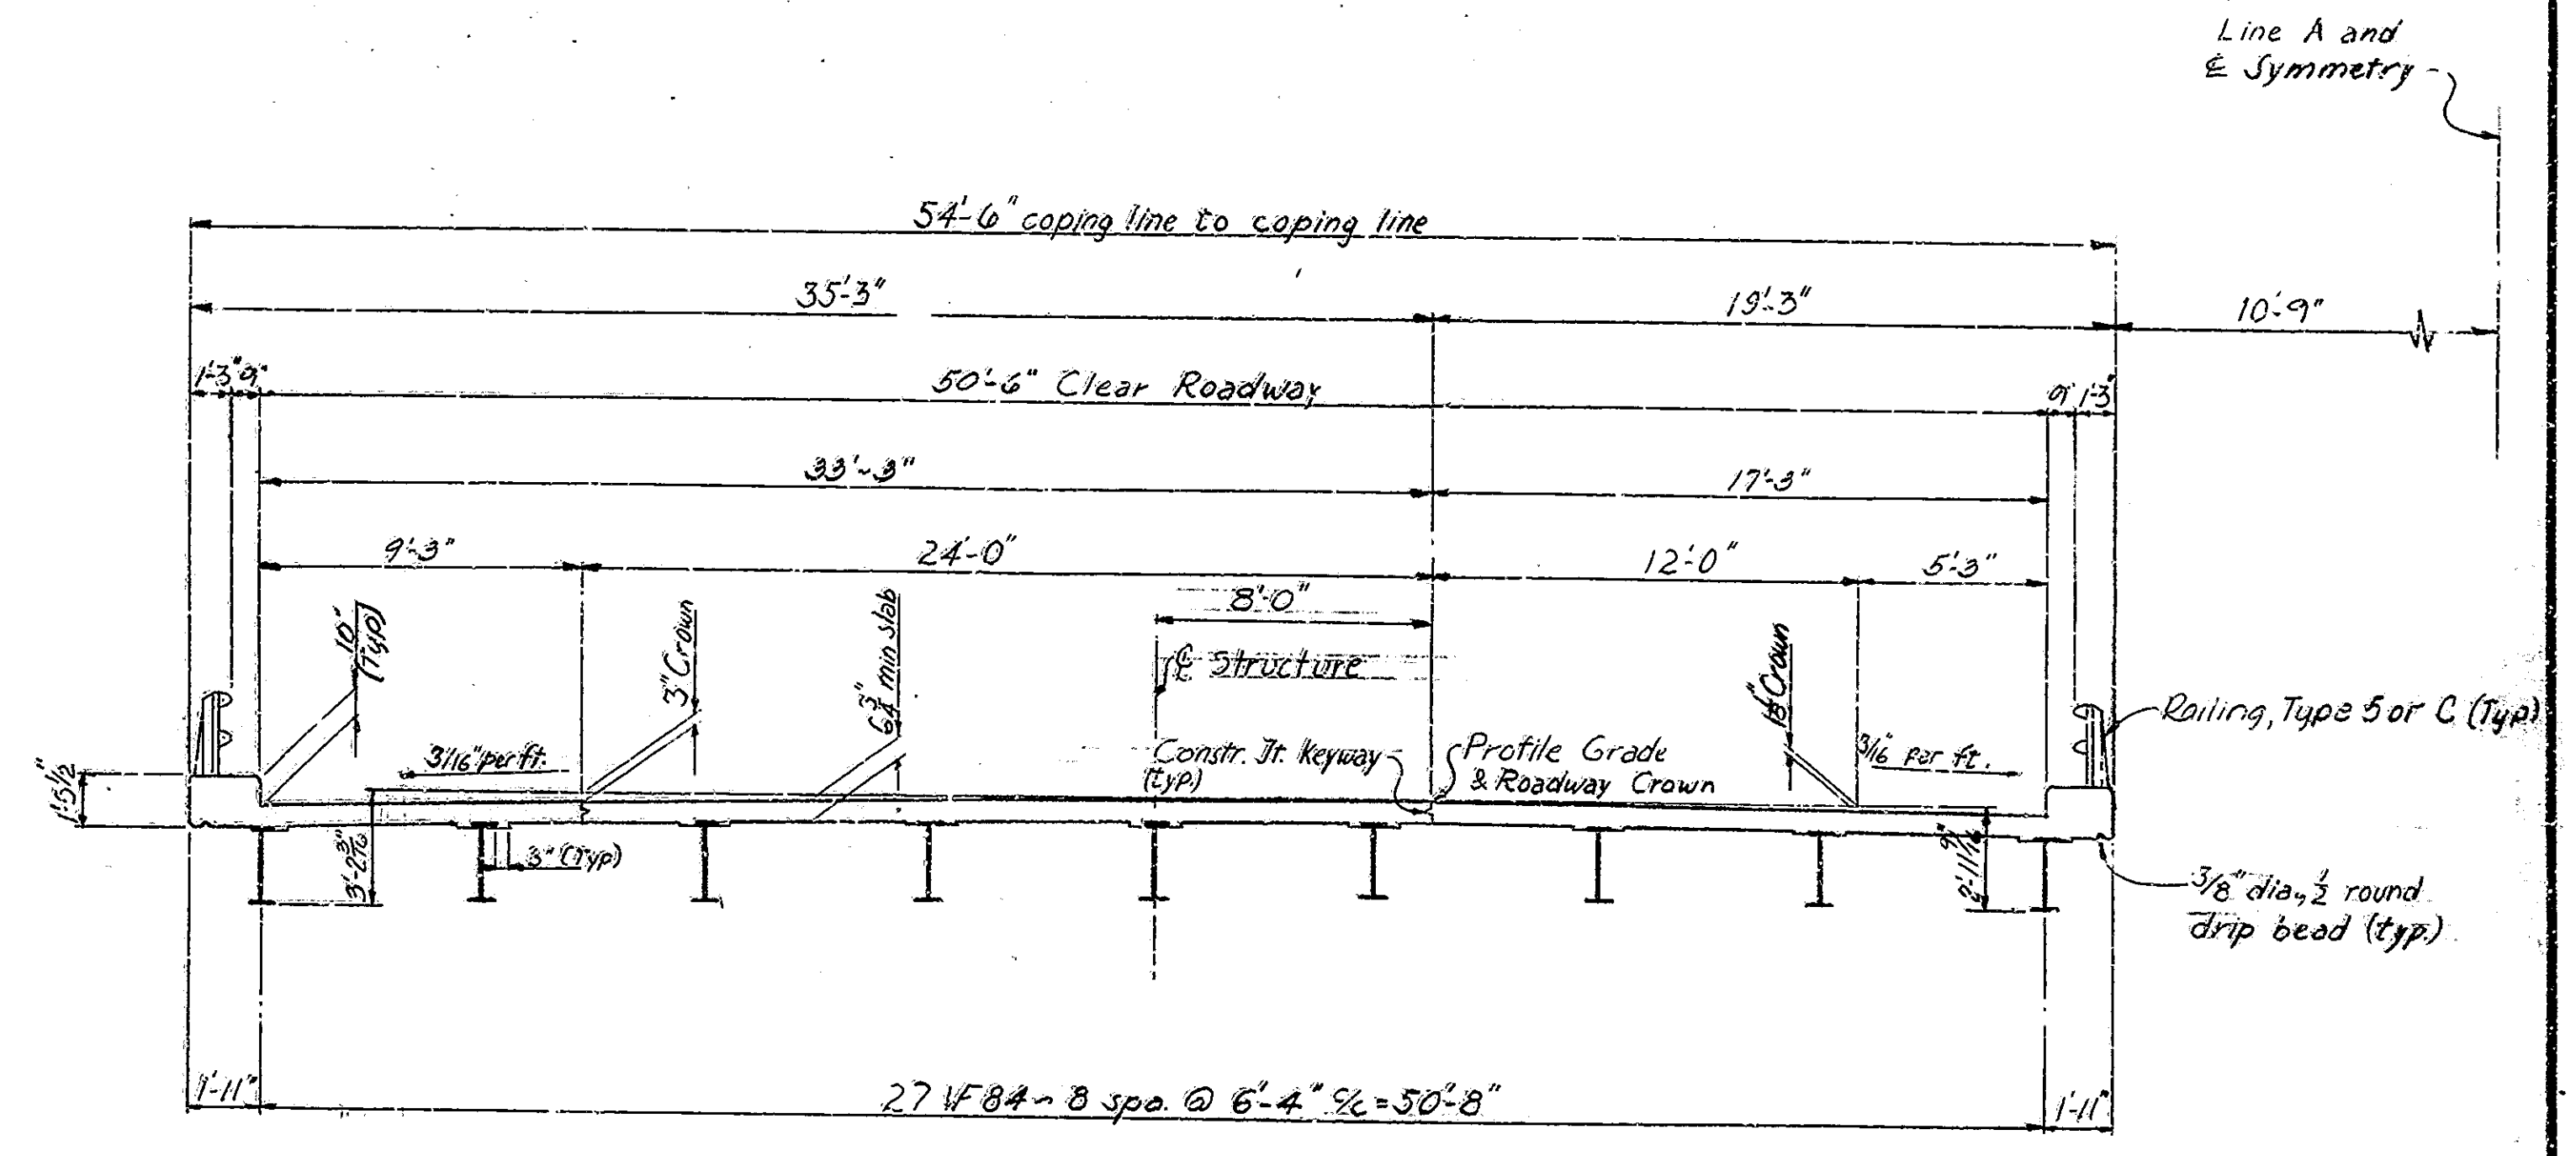 Line A and
℄ Symmetry
54'-6" coping line to coping line
35'-3"
19'-3"
10'-9"
1'-3" 9"
50'-6" Clear Roadway
9" 1'-3"
33'-3"
17'-3"
9'-3"
24'-0"
12'-0"
5'-3"
8'-0"
10"
(Typ)
3" Crown
6 3/4" min slab
℄ Structure
Crown
Railing, Type 5 or C (Typ)
3/16" per ft.
Constr. Jt. Keyway
(typ.)
Profile Grade
& Roadway Crown
3/16 per ft.
1'-5 1/2"
3'-2 3/16"
3" (Typ)
2'-11 9/16"
3/8" dia, 1/2 round
drip bead (typ.)
1'-11"
27 WF 84 ~ 8 spa. @ 6'-4" c/c = 50'-8"
1'-11"